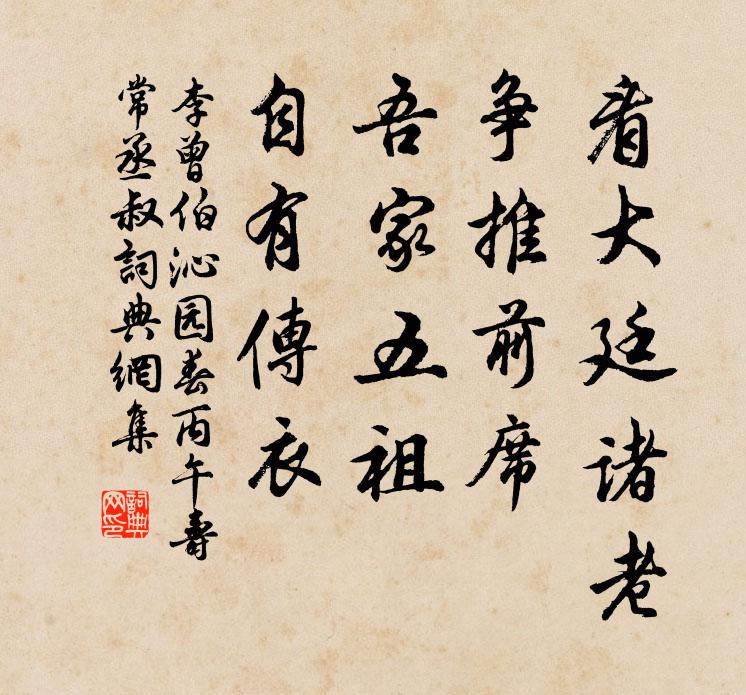 看大廷诸老
争推前席
吾家五祖
自有傳衣
李曾伯沁园春丙午壽
常丞叔詞典網集
詞典网印